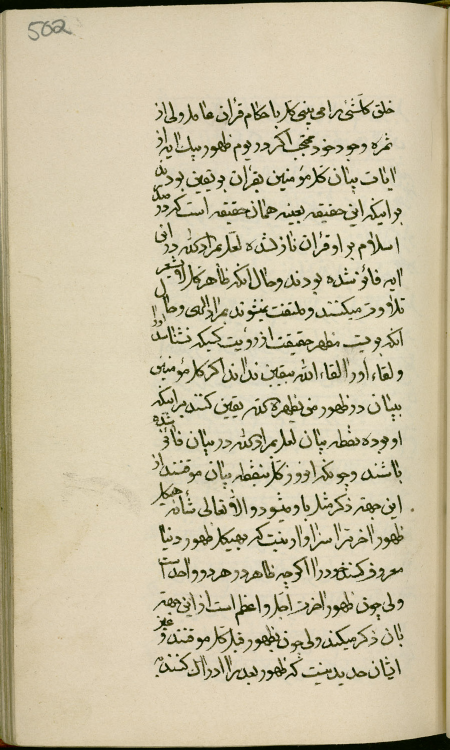 502
خلق کلشئ را می بینی کل باحکام قرآن عامل ولی از
ثمره وجود خود محتجب اگر در یوم ظهور بیک ایه از
ایات بیان کل مؤمنین بقران یقین بودند
بر اینکه این حقیقه بعینه همان حقیقه است که در صدر
اسلام بر او قران نازل شده لعل بمراد الله در این
ایه فائز شده بودند و حال آنکه ظاهر کل
تلاوت میکنند و ملتفت نمیشوند بمراد الهی و حال
آنکه رویت مظهر حقیقت از رویت کسیکه نشناسد او را
و لقاء او را لقاء الله بیقین نداند اگر کل مؤمنین
ببیان در ظهور من یظهره الله یقین کنند بر اینکه
او بوده نقطه بیان لعل بمراد الله در بیان فائز شده
باشند و چونکه امروز کل بنقطه بیان موقنند از
این جهة ذکر مثل باو میشود والا تعالی شأنه
ظهور اخرت را سزاوار نیست که بهیکل ظهور دنیا
معروف کند خود را اگرچه ظاهر در هر دو واحد است
ولی چون ظهور اخرت اجل و اعظم است از این جهة
بآن ذکر میکند ولی چون بظهور قبل کل موقنند و غیر
ایشان حدید نیست که ظهور بعد را ادراک کنند